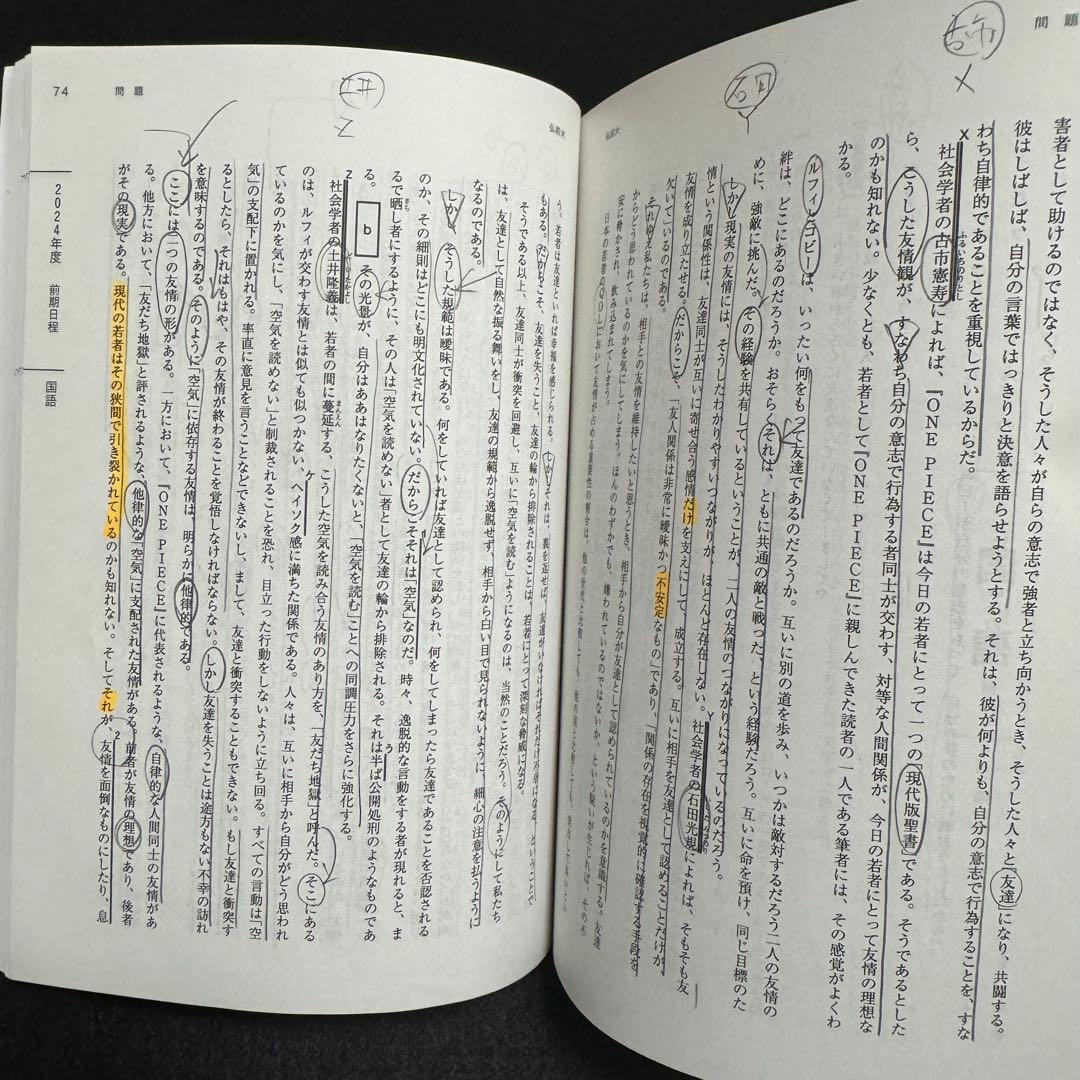 問題
古市
X
害者として助けるのではなく、そうした人々が自らの意志で強者と立ち向かうとき、そうした人々と「友達」になり、共闘する。
彼はしばしば、自分の言葉ではっきりと決意を語らせようとする。それは、彼が何よりも、自分の意志で行為することを、すな
わち自律的であることを重視しているからだ。
X
社会学者の古市憲寿によれば、『ONE PIECE』は今日の若者にとって一つの「現代版聖書」である。そうであるとした
ふるいちのりとし
ら、こうした友情観が、すなわち自分の意志で行為する者同士が交わす、対等な人間関係が、今日の若者にとって友情の理想な
のかも知れない。少なくとも、若者として『ONE PIECE』に親しんできた読者の一人である筆者には、その感覚がよくわ
かる。
石田
Y
ルフィとコビーは、いったい何をもって友達であるのだろうか。互いに別の道を歩み、いつかは敵対するだろう二人の友情の
絆は、どこにあるのだろうか。おそらくそれは、ともに共通の敵と戦った、という経験だろう。互いに命を預け、同じ目標のた
めに、強敵に挑んだ。その経験を共有しているということが、二人の友情のつながりになっているのだろう。
しかし現実の友情には、そうしたわかりやすいつながりが、ほとんど存在しない。社会学者の石田光規によれば、そもそも友
Y
いしだみつのり
情という関係性は、友達同士が互いに寄せ合う感情だけを支えにして、成立する。互いに相手を友達として認めることだけが、
友情を成り立たせる。だからこそ、「友人関係は非常に曖昧かつ不安定なもの」であり、「関係の存在を視覚的に確認する手段を
欠いているのである。
それゆえ私たちは、相手との友情を維持したいと思うとき、相手から自分が友達として認められているのかを意識する。友達
からどう思われているのかを気にしてしまう。ほんのわずかでも、嫌われているのではないか、という疑いが生じれば、その不
安に脅かされ、飲み込まれてしまう。
弘前大
弘前大
う。若者は友達といれば幸福を感じられる。しかしそれは、裏を返せば、友達がいなければそれだけ不幸になる、ということで
もある。だからこそ、友達を失うこと、友達の輪から排除されることは、若者にとって深刻な脅威になる。
そうである以上、友達同士が衝突を回避し、互いに「空気を読む」ようになるのは、当然のことだろう。そのようにして私たち
は、友達として自然な振る舞いをし、友達の規範から逸脱せず、相手から白い目で見られないように、細心の注意を払うように
なるのである。
しかし、そうした規範は曖昧である。何をしていれば友達として認められ、何をしてしまったら友達であることを否認される
のか、その細則はどこにも明文化されていない。だからこそそれは「空気」なのだ。時々、逸脱的な言動をする者が現れると、ま
るで晒し者にするように、その人は「空気を読めない」者として友達の輪から排除される。それは半ば公開処刑のようなものであ
さら
る。
b
その光景が、自分はああはなりたくないと、「空気を読む」ことへの同調圧力をさらに強化する。
土井
Z
Z
社会学者の土井隆義は、若者の間に蔓延する、こうした空気を読み合う友情のあり方を、「友だち地獄」と呼んだ。そこにある
どいたかよし
まんえん
のは、ルフィが交わす友情とは似ても似つかない、ヘイソク感に満ちた関係である。人々は、互いに相手から自分がどう思われ
ているのかを気にし、「空気を読めない」と制裁されることを恐れ、目立った行動をしないように立ち回る。すべての言動は「空
気」の支配下に置かれる。率直に意見を言うことなどできないし、まして、友達と衝突することもできない。もし友達と衝突す
るとしたら、それはもはや、その友情が終わることを覚悟しなければならない。しかし友達を失うことは途方もない不幸の訪れ
を意味するのである。そのように「空気」に依存する友情は、明らかに他律的である。
ここには二つの友情の形がある。一方において、『ONE PIECE』に代表されるような、自律的な人間同士の友情があ
る。他方において、「友だち地獄」と評されるような、他律的な「空気」に支配された友情がある。前者が友情の理想であり、後者
がその現実である。現代の若者はその狭間で引き裂かれているのかも知れない。そしてそれが、友情を面倒なものにしたり、息
2
74
問題
2024年度
前期日程
国語